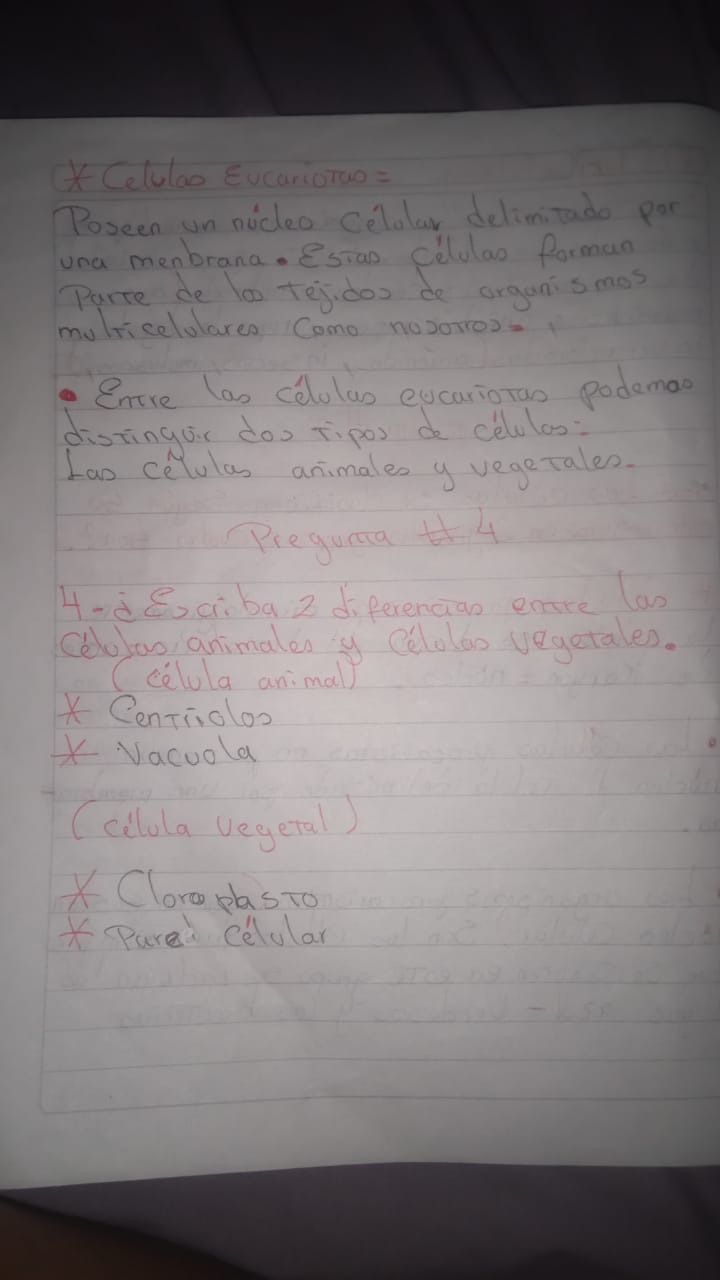 * Celulas Eucariotas=
Poseen un núcleo Célular delimitado por
una menbrana. Estas Células forman
Parte de los tejidos de organismos
multicelulares Como nosotros.
• Entre las células eucariotas podemos
distinguir dos tipos de células:
Las células animales y vegetales.
Pregunta # 4
4-¿Escriba 2 diferencias entre las
Células animales y Células vegetales.
(célula animal)
* Centríolos
* Vacuola
(célula vegetal)
* Cloroplasto
* Pared Célular